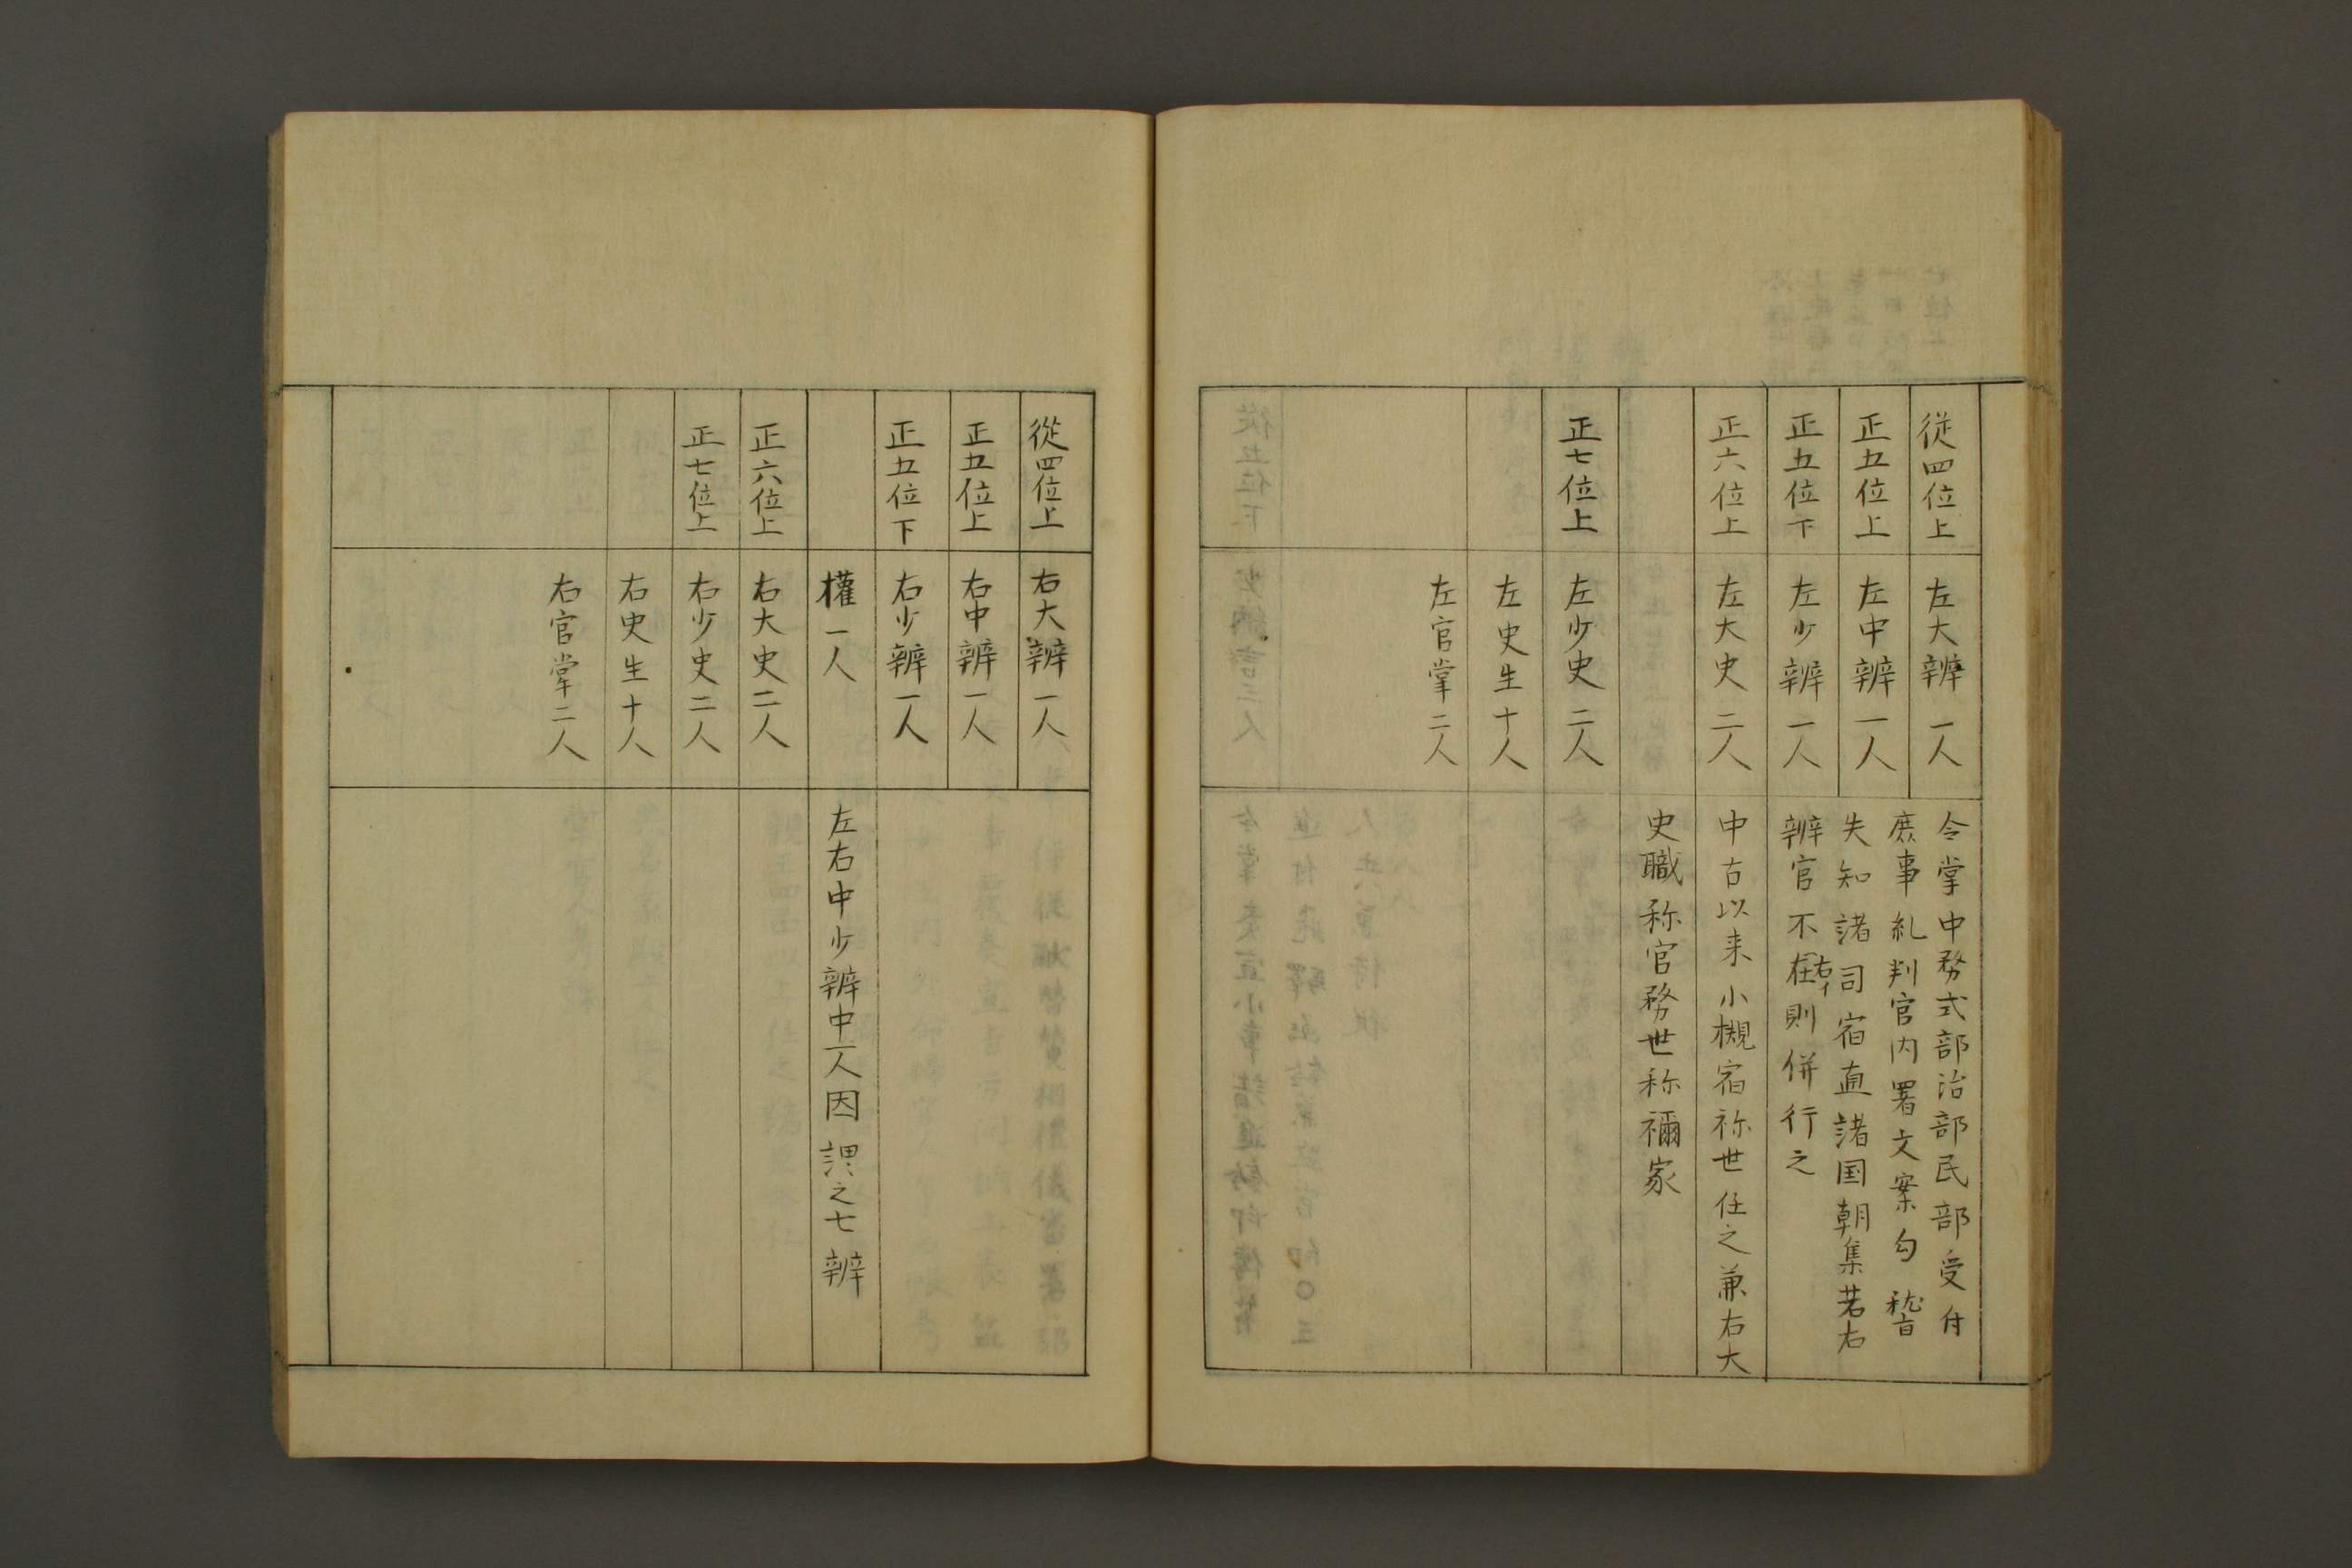 従四位上
左大辨一人
令掌中務式部治部民部受付
庶事糺判官内署文案勾嵆
失知諸司宿直諸国朝集若右
辨官不在則併行之
右イ
正五位上
左中辨一人
正五位下
左少辨一人
正六位上
左大史二人
中古以来小槻宿祢世任之兼右大
史職称官務世称禰家
正七位上
左少史二人
左史生十人
左官掌二人
從四位上
右大辨一人
正五位上
右中辨一人
正五位下
右少辨一人
權一人
左右中少辨中一人因謂之七辨
正六位上
右大史二人
正七位上
右少史二人
右史生十人
右官掌二人